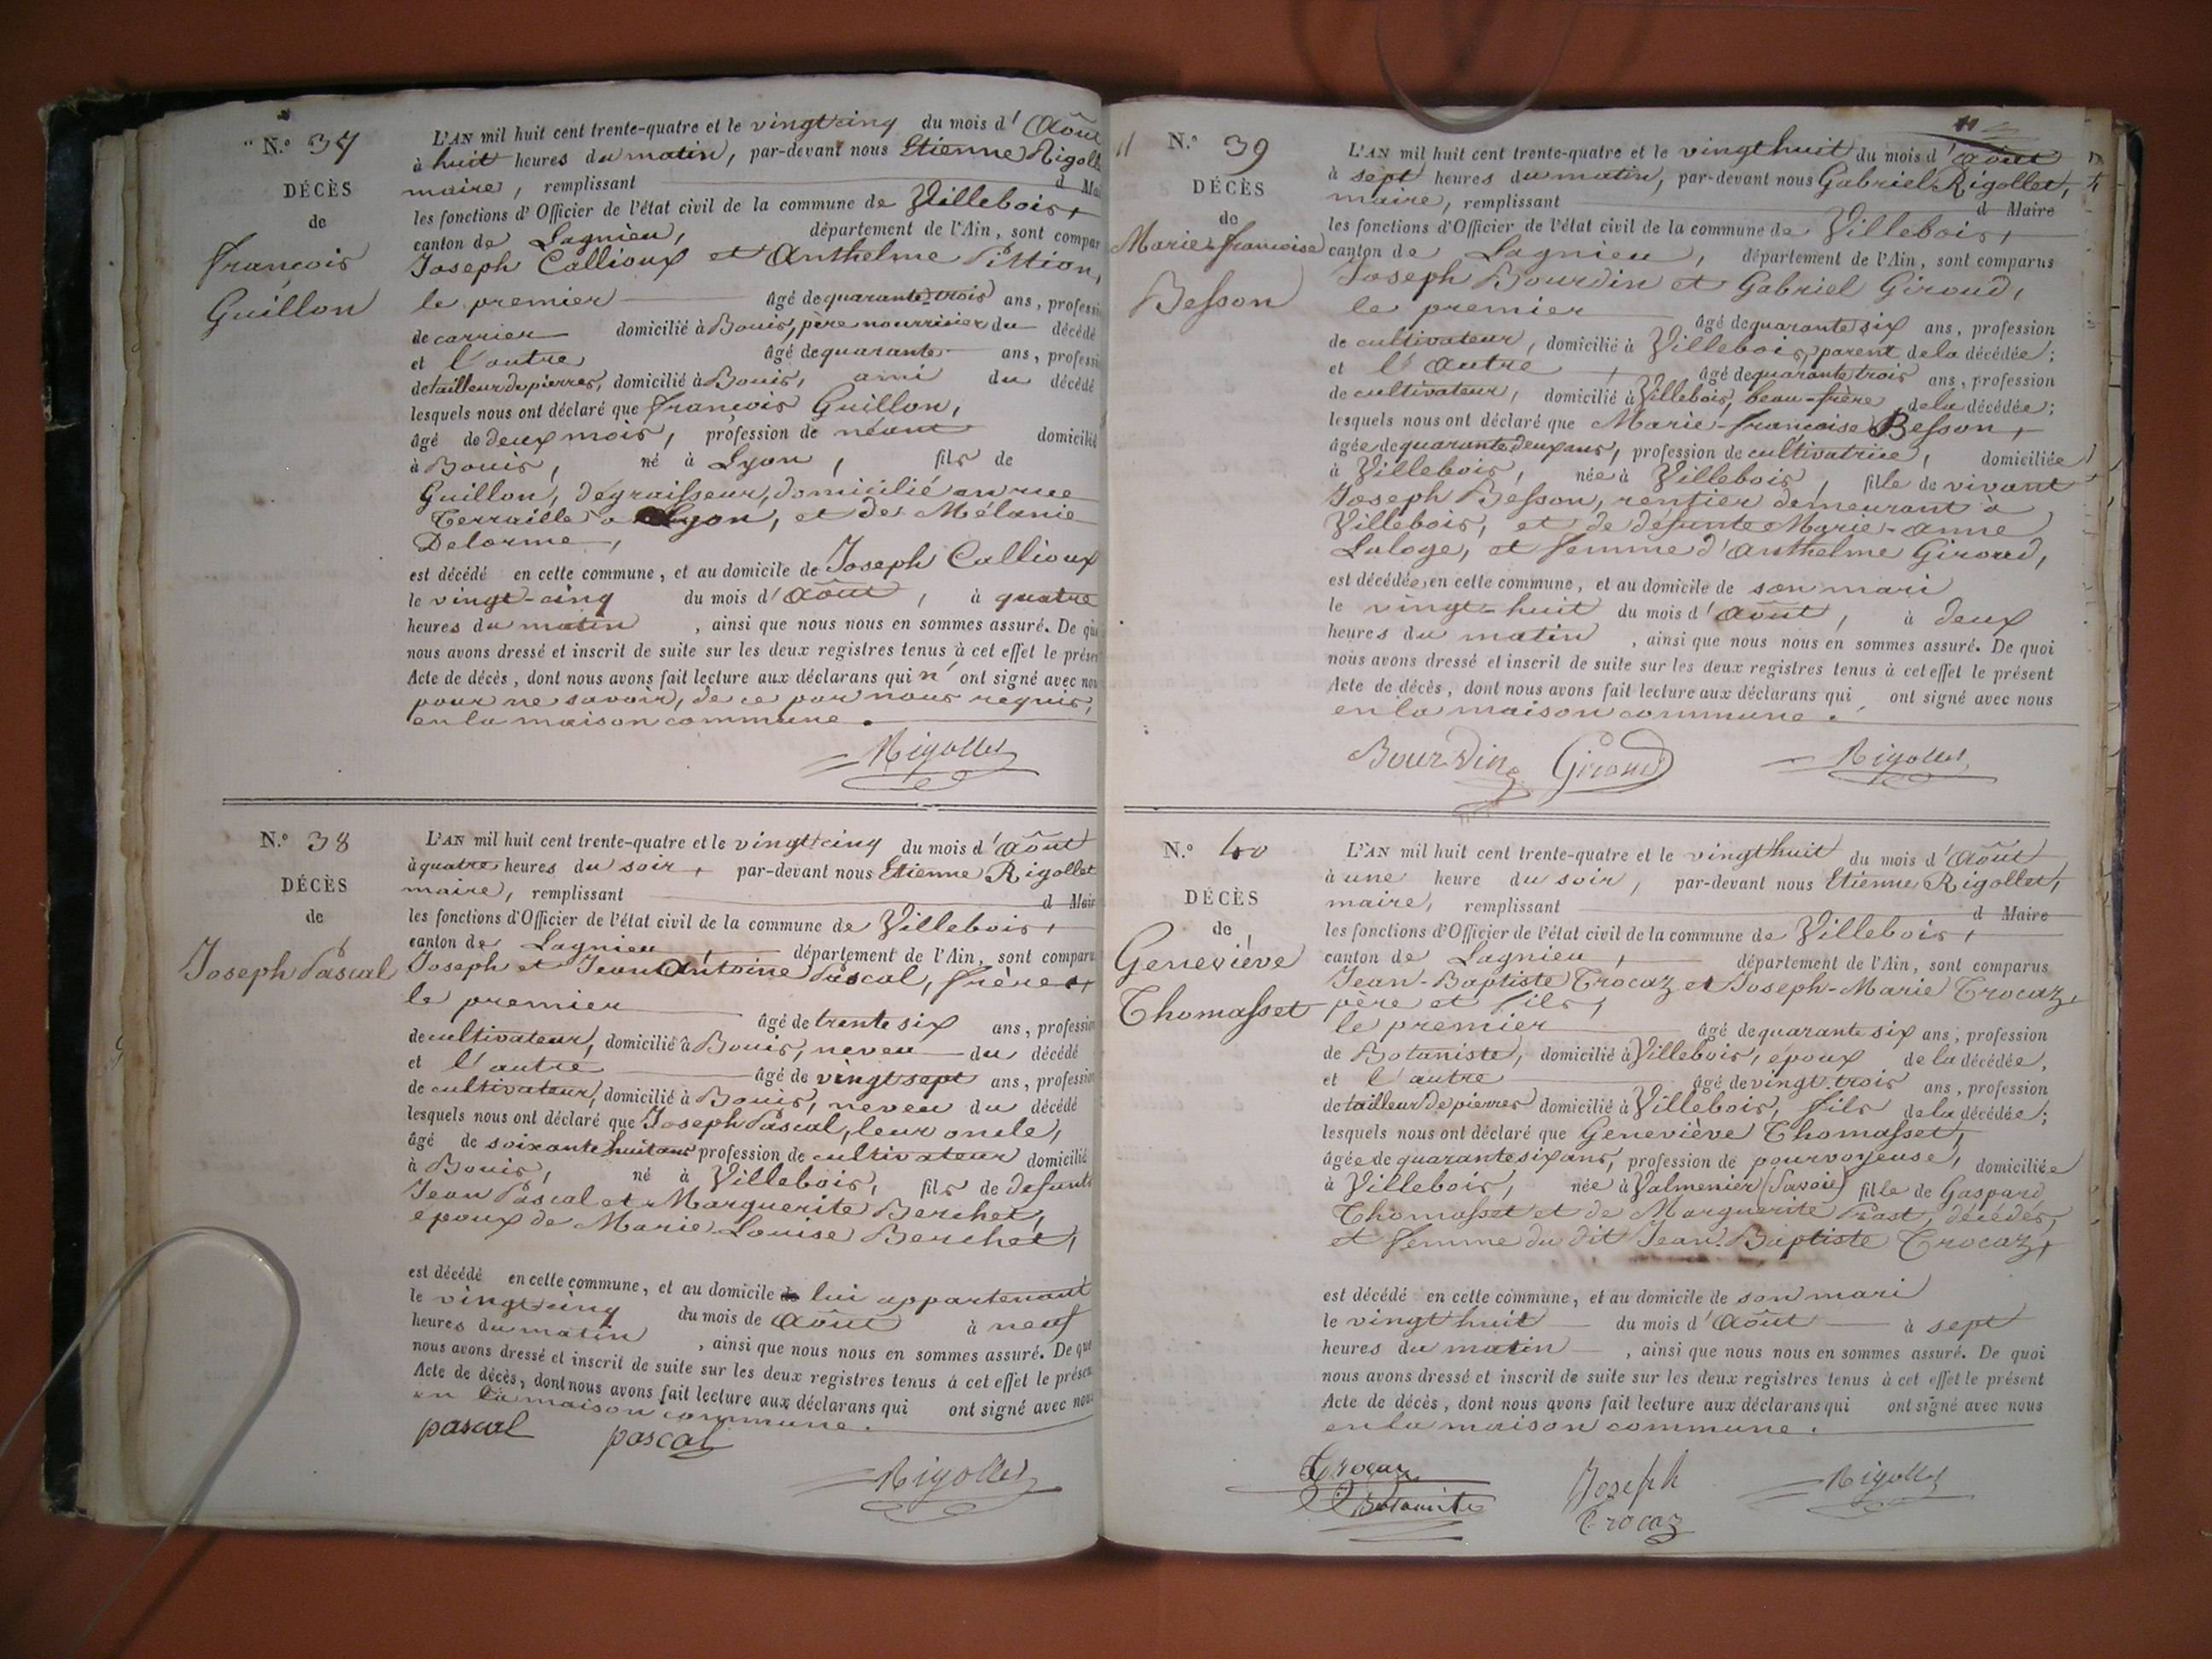 N.º 37
DÉCÈS
de
François
Guillon
L'AN mil huit cent trente-quatre et le vingt cinq du mois d'Août
à huit heures du matin, par-devant nous Etienne Rigolle
maire, remplissant d Mai
les fonctions d'Officier de l'état civil de la commune de Villebois,
canton de Lagnieu, département de l'Ain, sont compar
Joseph Callioux et Anthelme Pittion,
le premier âgé de quarante-trois ans, professi
de carrier domicilié à Bouis, père nourricier du décédé
et l'autre âgé de quarante ans, professi
de tailleur de pierres, domicilié à Bouis, ami du décédé
lesquels nous ont déclaré que François Guillon,
âgé de deux mois, profession de néant domicilié
à Bouis, né à Lyon, fils de
Guillon, dégraisseur, domicilié en rue
Terraille à Lyon, et de Mélanie
Delorme,
est décédé en cette commune, et au domicile de Joseph Callioux
le vingt-cinq du mois d'Août, à quatre
heures du matin, ainsi que nous nous en sommes assuré. De qu
nous avons dressé et inscrit de suite sur les deux registres tenus à cet effet le présen
Acte de décès, dont nous avons fait lecture aux déclarans qui n'ont signé avec nou
pour ne savoir, de ce par nous requis,
en la maison commune.
Rigollet
N.º 38
DÉCÈS
de
Joseph Pascal
L'AN mil huit cent trente-quatre et le vingt cinq du mois d'Août
à quatre heures du soir, par-devant nous Etienne Rigollet
maire, remplissant d Mair
les fonctions d'Officier de l'état civil de la commune de Villebois,
canton de Lagnieu, département de l'Ain, sont comparu
Joseph et Jean Antoine Pascal, frères,
le premier âgé de trente six ans, profession
de cultivateur, domicilié à Bouis, neveu du décédé
et l'autre âgé de vingt sept ans, profession
de cultivateur, domicilié à Bouis, neveu du décédé
lesquels nous ont déclaré que Joseph Pascal, leur oncle,
âgé de soixante huit ans profession de cultivateur domicilié
à Bouis, né à Villebois, fils de defunts
Jean Pascal et Marguerite Berchet,
époux de Marie Louise Berchet,
est décédé en cette commune, et au domicile de lui appartenant
le vingt cinq du mois de Août à neuf
heures du matin, ainsi que nous nous en sommes assuré. De quo
nous avons dressé et inscrit de suite sur les deux registres tenus à cet effet le présen
Acte de décès, dont nous avons fait lecture aux déclarans qui ont signé avec nous
en la maison commune.
pascal pascal
Rigollet
N.º 39
DÉCÈS
de
Marie-françoise
Besson
L'AN mil huit cent trente-quatre et le vingt huit du mois d'Août
à sept heures du matin, par-devant nous Gabriel Rigollet,
maire, remplissant d Maire
les fonctions d'Officier de l'état civil de la commune de Villebois,
canton de Lagnieu, département de l'Ain, sont comparus
Joseph Bourdin et Gabriel Giroud,
le premier âgé de quarante six ans, profession
de cultivateur, domicilié à Villebois, parent de la décédée;
et l'Autre, âgé de quarante trois ans, profession
de cultivateur, domicilié à Villebois, beau-frère de la décédée;
lesquels nous ont déclaré que Marie-françoise Besson,
âgée de quarante deux ans, profession de cultivatrice, domiciliée
à Villebois, née à Villebois, fille de vivant
Joseph Besson, rentier demeurant à
Villebois, et de defunte Marie-anne
Laloge, et femme d'Anthelme Giroud,
est décédée en cette commune, et au domicile de son mari
le vingt-huit du mois d'Août, à deux
heures du matin, ainsi que nous nous en sommes assuré. De quoi
nous avons dressé et inscrit de suite sur les deux registres tenus à cet effet le présent
Acte de décès, dont nous avons fait lecture aux déclarans qui ont signé avec nous
en la maison commune.
Bourdin Giroud Rigollet
N.º 40
DÉCÈS
de
Geneviève
Thomasset
L'AN mil huit cent trente-quatre et le vingt huit du mois d'Août
à une heure du soir, par-devant nous Etienne Rigollet,
maire, remplissant d Maire
les fonctions d'Officier de l'état civil de la commune de Villebois,
canton de Lagnieu, département de l'Ain, sont comparus
Jean-Baptiste Crocaz et Joseph-Marie Crocaz,
père et fils,
le premier âgé de quarante six ans, profession
de Botaniste, domicilié à Villebois, époux de la décédée,
et l'autre âgé de vingt trois ans, profession
de tailleur de pierres domicilié à Villebois, fils de la décédée;
lesquels nous ont déclaré que Geneviève Thomasset,
âgée de quarante six ans, profession de pourvoyeuse, domiciliée
à Villebois, née à Valmenier (Savoie) fille de Gaspard
Thomasset et de Marguerite Prast, décédés,
et femme du dit Jean-Baptiste Crocaz,
est décédé en cette commune, et au domicile de son mari
le vingt huit du mois d'Août à sept
heures du matin, ainsi que nous nous en sommes assuré. De quoi
nous avons dressé et inscrit de suite sur les deux registres tenus à cet effet le présent
Acte de décès, dont nous avons fait lecture aux déclarans qui ont signé avec nous
en la maison commune.
Crocaz Joseph Rigollet
Botaniste Crocaz